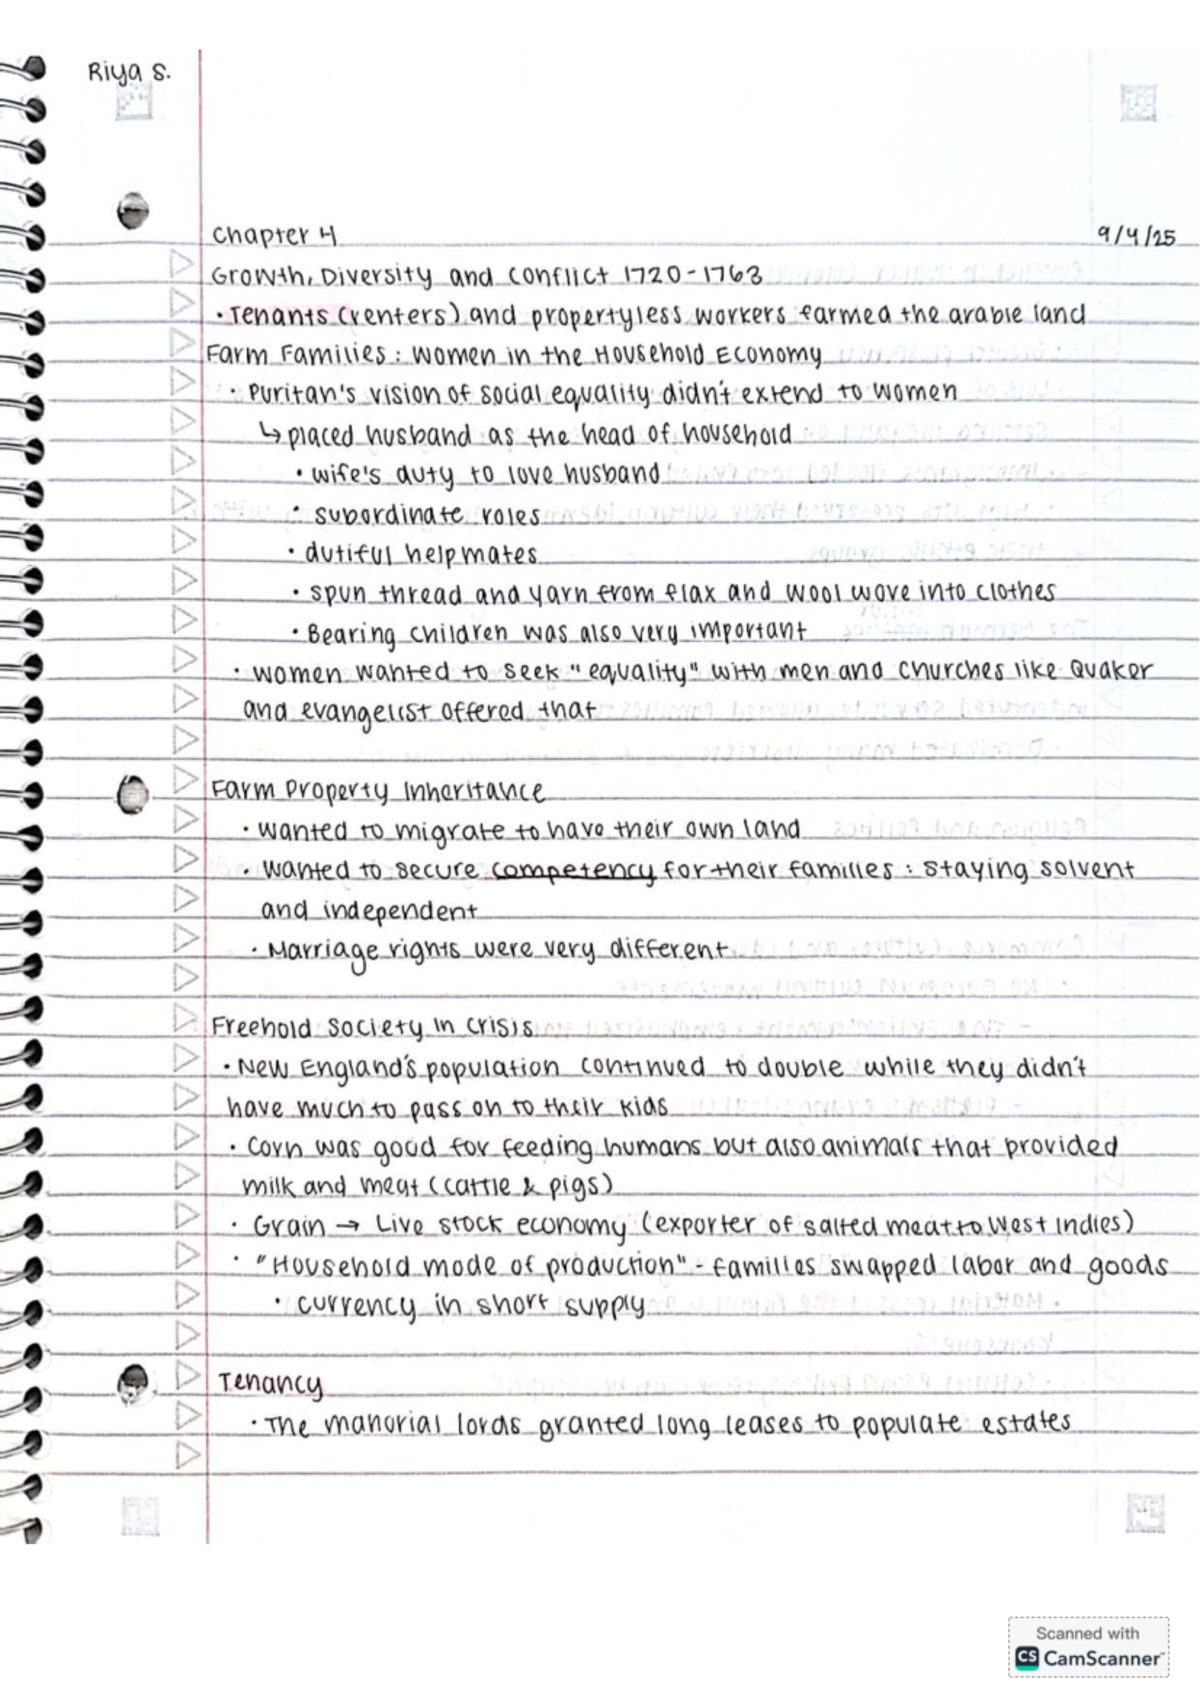 Riya S.
Chapter 4
9/4/25
Growth, Diversity and Conflict 1720-1763
• Tenants (renters) and propertyless workers farmed the arable land
Farm Families: Women in the Household Economy
• Puritan's vision of social equality didn't extend to women
↳ placed husband as the head of household
• wife's duty to love husband
• subordinate roles
• dutiful helpmates
• spun thread and yarn from flax and wool wove into clothes
• Bearing children was also very important
• Women wanted to seek "equality" with men and churches like Quaker
and evangelist offered that
Farm Property Inheritance
• Wanted to migrate to have their own land
• Wanted to secure competency for their families: staying solvent
and independent
• Marriage rights were very different
Freehold Society In Crisis
• New England's population continued to double while they didn't
have much to pass on to their kids
• Corn was good for feeding humans but also animals that provided
milk and meat (cattle & pigs)
• Grain → Live stock economy (exporter of salted meat to West Indies)
• "Household mode of production" - families swapped labor and goods
• currency in short supply
Tenancy
• The manorial lords granted long leases to populate estates
Scanned with
CS CamScanner